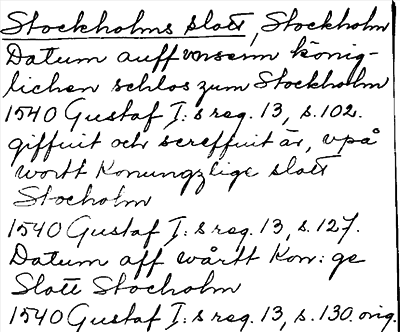 Stockholms slott, Stockholm
Datum auff vnserm könig-
lichen schlos zum Stockholm
1540 Gustaf I:s reg. 13, s. 102.
giffuit och screffuit är, vpå
wortt Konungzlige slott
Stocholm
1540 Gustaf I:s reg. 13, s. 127.
Datum aff wårtt Kon: ge
Slott Stocholm
1540 Gustaf I:s reg. 13, s. 130. orig.